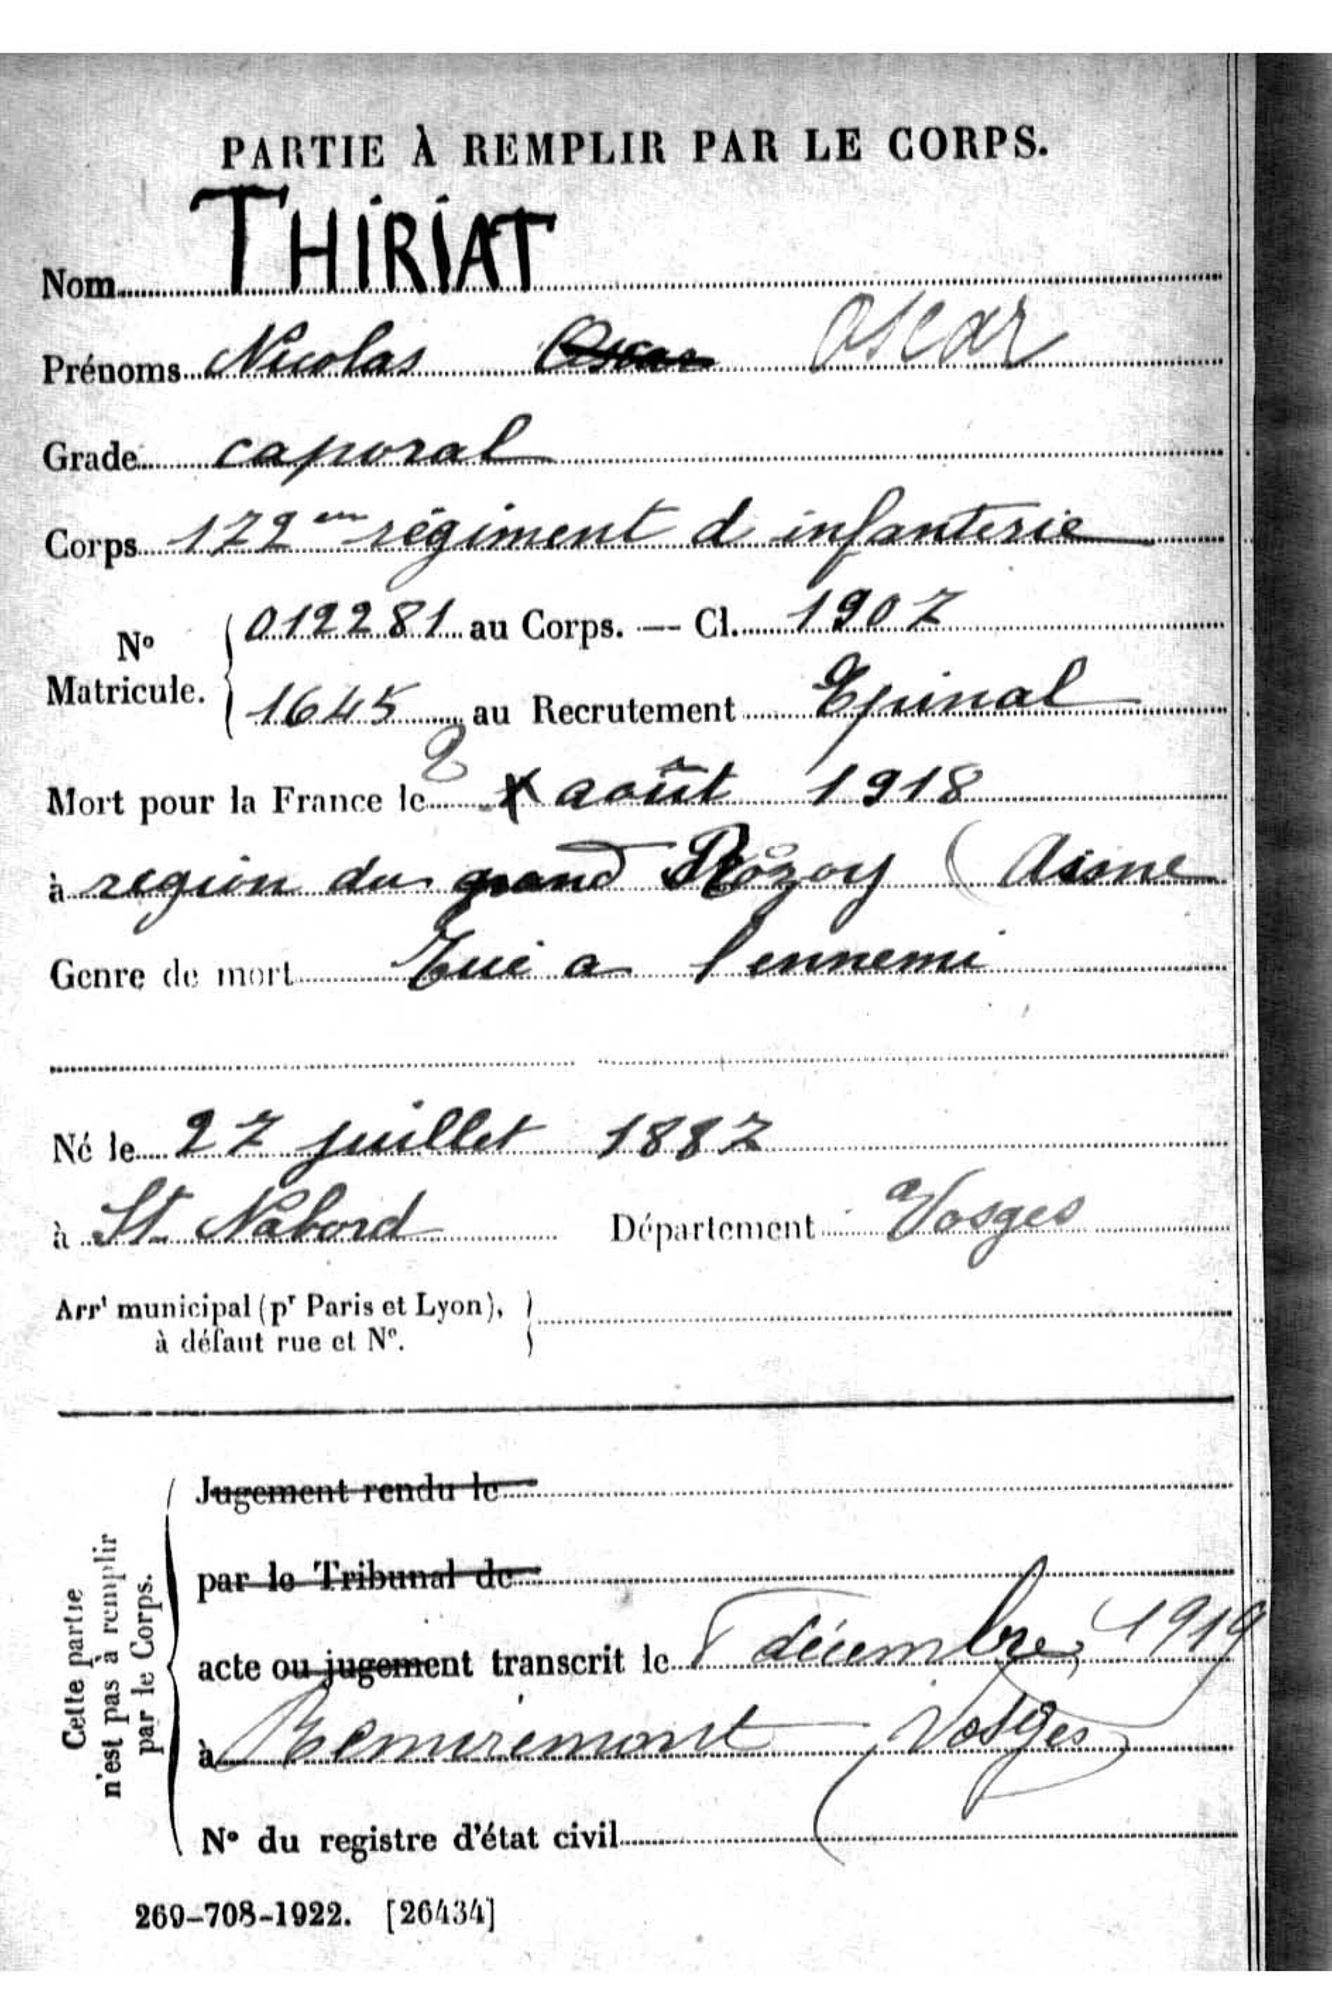 PARTIE À REMPLIR PAR LE CORPS.
Nom THIRIAT
Prénoms Nicolas Oscar Oscar
Grade caporal
Corps 172em régiment d infanterie
No Matricule. 012281 au Corps. — Cl. 1907
1645 au Recrutement Epinal
2
Mort pour la France le août 1918
à region du grand Rozoy (Aisne
Genre de mort Tué a l'ennemi
Né le 27 juillet 1887
à St Nabord Département Vosges
Arrt municipal (pr Paris et Lyon),
à défaut rue et No.
Cette partie
n'est pas à remplir
par le Corps.
Jugement rendu le
par le Tribunal de
acte ou jugement transcrit le décembre 1919
à Remiremont (Vosges)
No du registre d'état civil
269-708-1922. [26434]